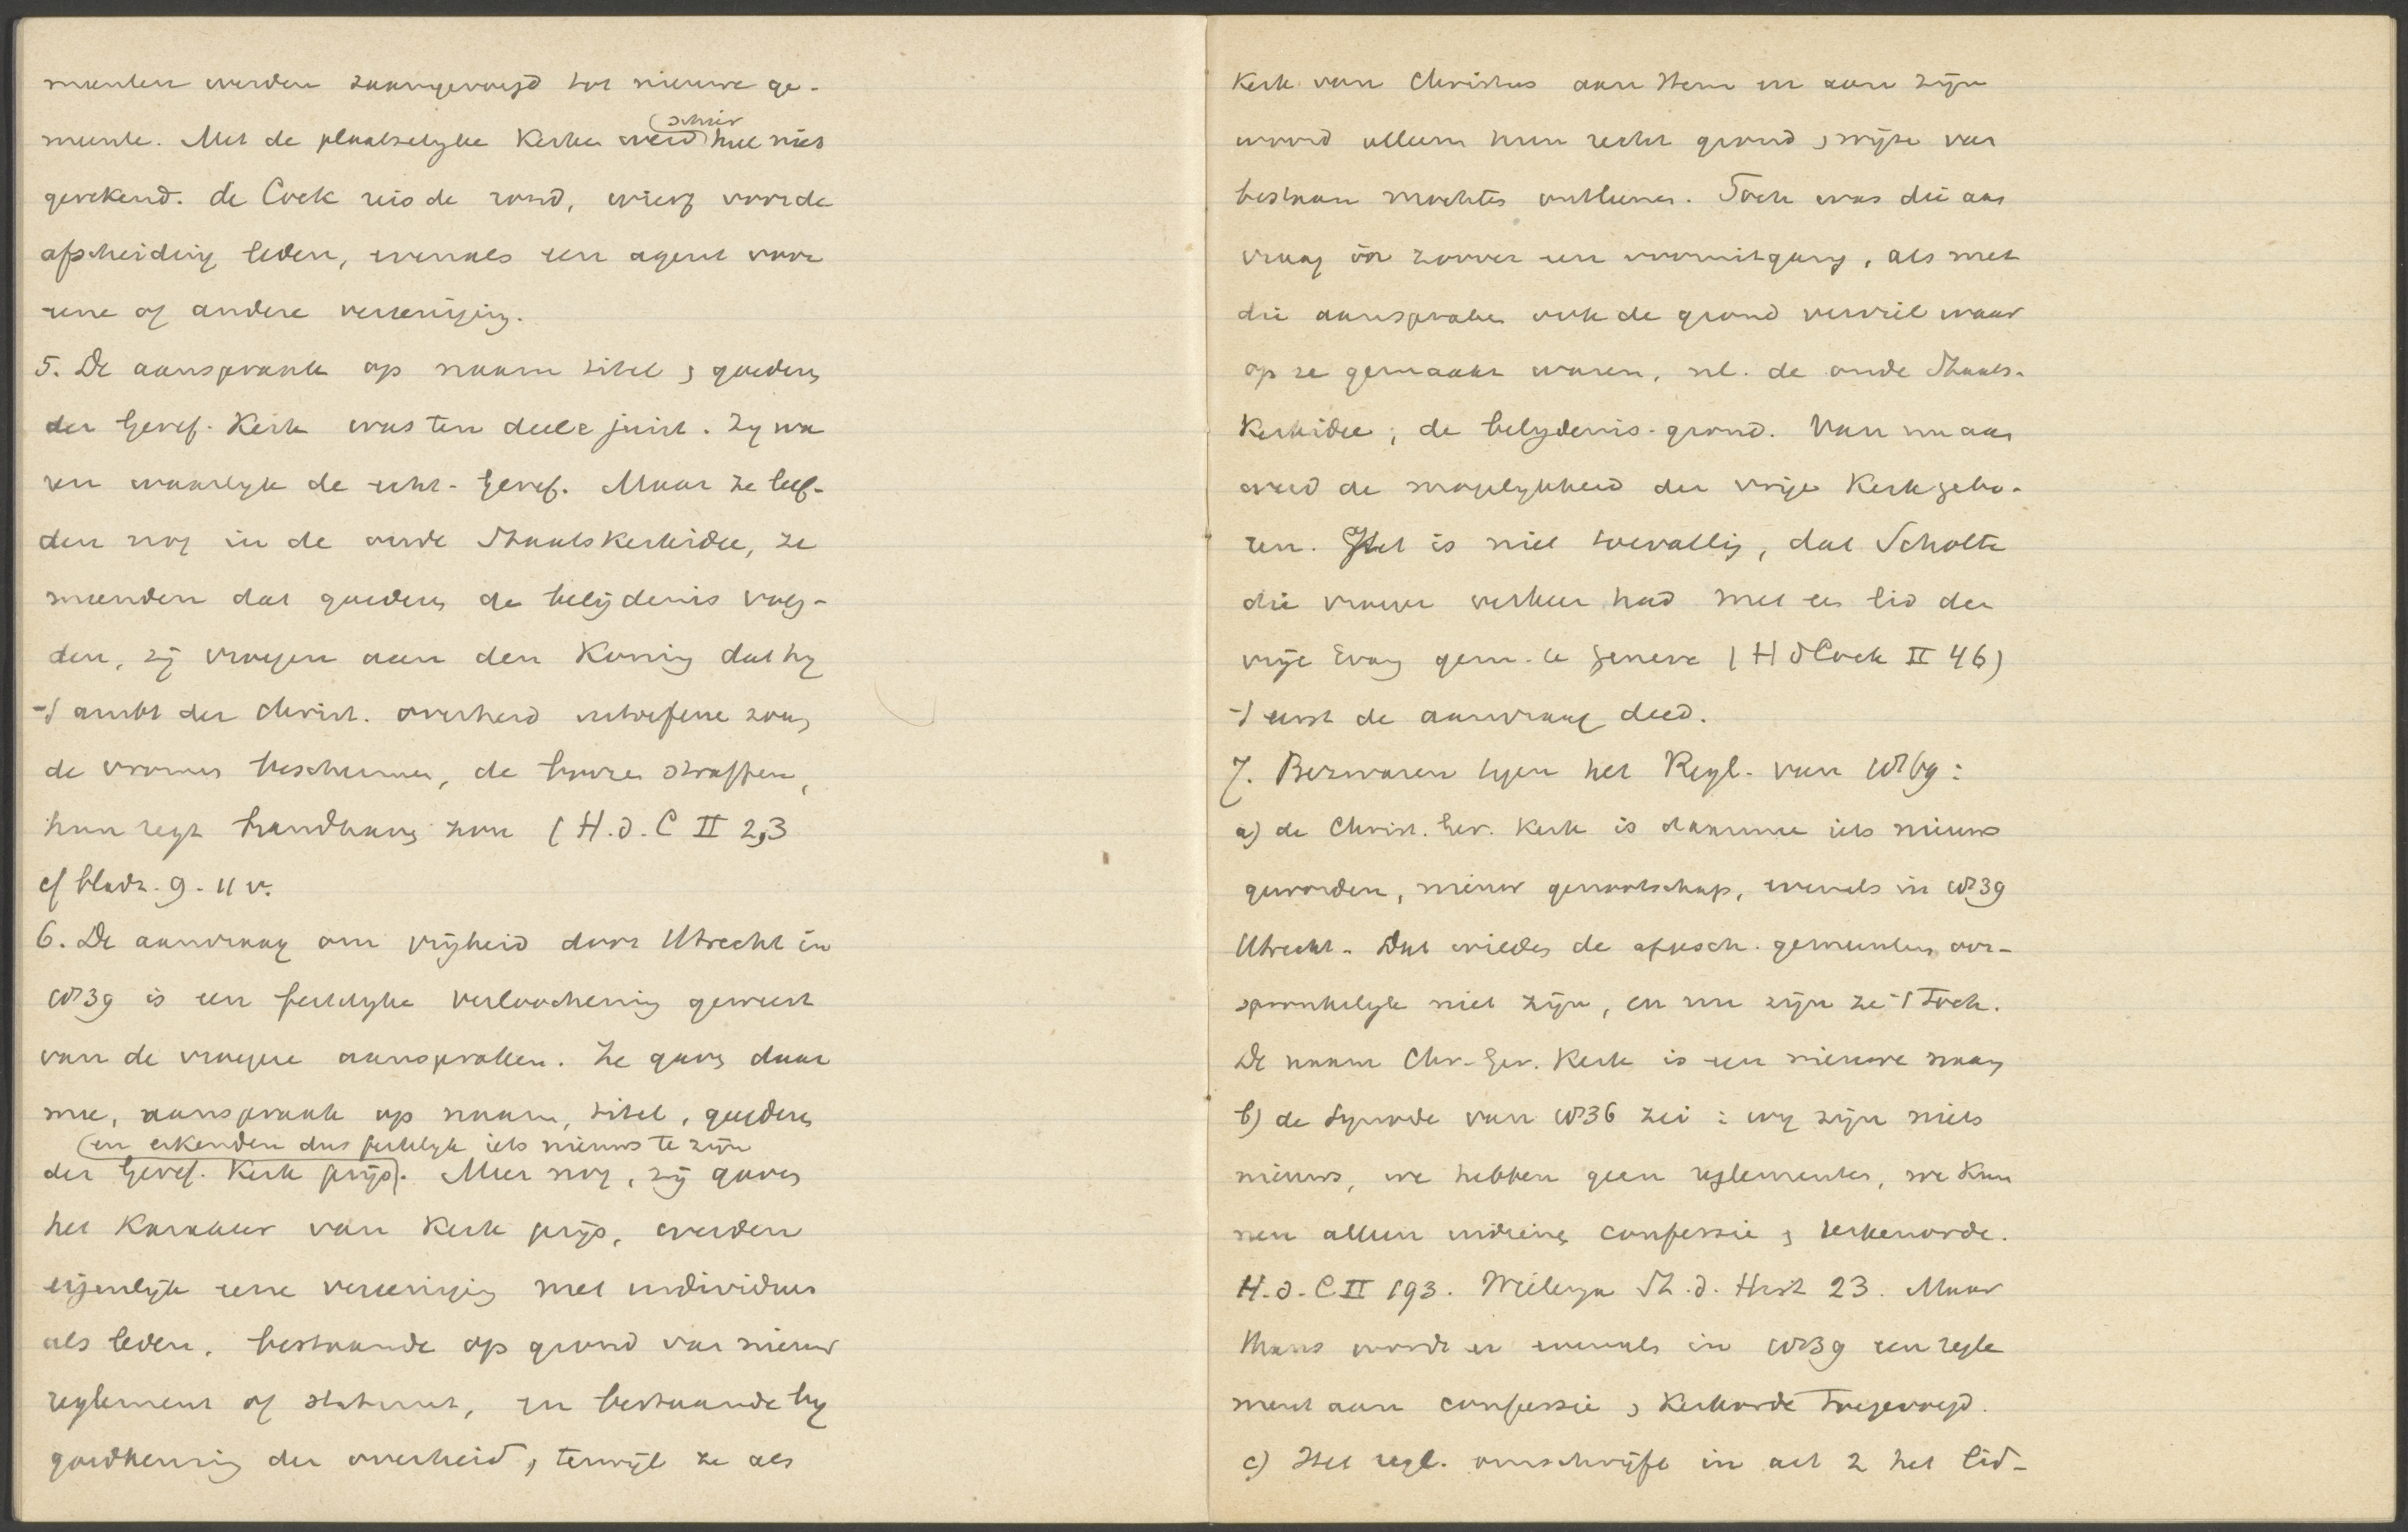 meenten werden zaamgevoegd tot nieuwe ge-
meente. Met de plaatselyke Kerken werd (schier heel niet
gerekend. de Cock reisde rond, wierf voor de
afscheiding leden, evenals een agent voor
eene of andere vereeniging.
5. De aanspraak op naam titel & goederen
der Geref. Kerk was ten deele juist. Zy wa
ren waarlyk de echt-Geref. Maar ze leef-
den nog in de oude Staatskerkidee, ze
meenden dat goederen de belijdenis volg-
den, zij vroegen aan den Koning dat hy
't ambt der christ. overheid uitoefene zou,
de vromen beschermen, de booze straffen,
hun regt handhaven zou (H.d.C II 2,3
cf bladz. 9-11 v.
6. De aanvraag om vrijheid door Utrecht in
1839 is een feitelyke verloochening geweest
van de vroegere aanspraken. Ze gaven daar
mee, aanspraak op naam, titel, goederen
(en erkenden dus feitelyk iets nieuws te zijn
der Geref. Kerk prijs). Meer nog, zij gaven
het Karakter van Kerk prijs, werden
eigenlijk eene vereeniging met individuen
als leden, bestaande op grond van nieuw
reglement of statuut, en bestaande by
goedkeuring der overheid, terwijl ze als
Kerk van Christus aan Hem en aan zijn
woord alleen hun recht grond & wijze van
bestaan mochten ontleenen. Toch was die aan
vraag in zoover een vooruitgang, als met
die aanspraken ook de grond verviel waar
op ze gemaakt waren, nl. de oude Staats-
Kerkidee; de belydenis-grond. Van nu aan
werd de mogelykheid der vrije Kerk gebo-
ren. Het is niet toevallig, dat Scholte
die vroeger verkeer had met een lid der
vrije Evang gem. te Geneve (H d Cock II 46)
't eerst de aanvraag deed.
7. Bezwaren tegen het Regl. van 1869:
a) de Christ. Ger. Kerk is daarmee iets nieuws
geworden, nieuw genootschap, evenals in 1839
Utrecht. Dat wilden de afgesch. gemeenten oor-
spronkelyk niet zijn, en nu zijn ze 't toch.
De naam Chr. Ger. Kerk is een nieuwe naam
b) de Synode van 1836 zei: wy zijn niets
nieuws, we hebben geen reglementen, we kun
nen alleen indienen confessie & kerkenorde.
H.d.C II 193. Wielenga St. d. Hist 23. Maar
thans wordt er evenals in 1839 een regle
ment aan confessie & Kerkorde toegevoegd.
c) Het regl. omschrijft in art 2 het lid-